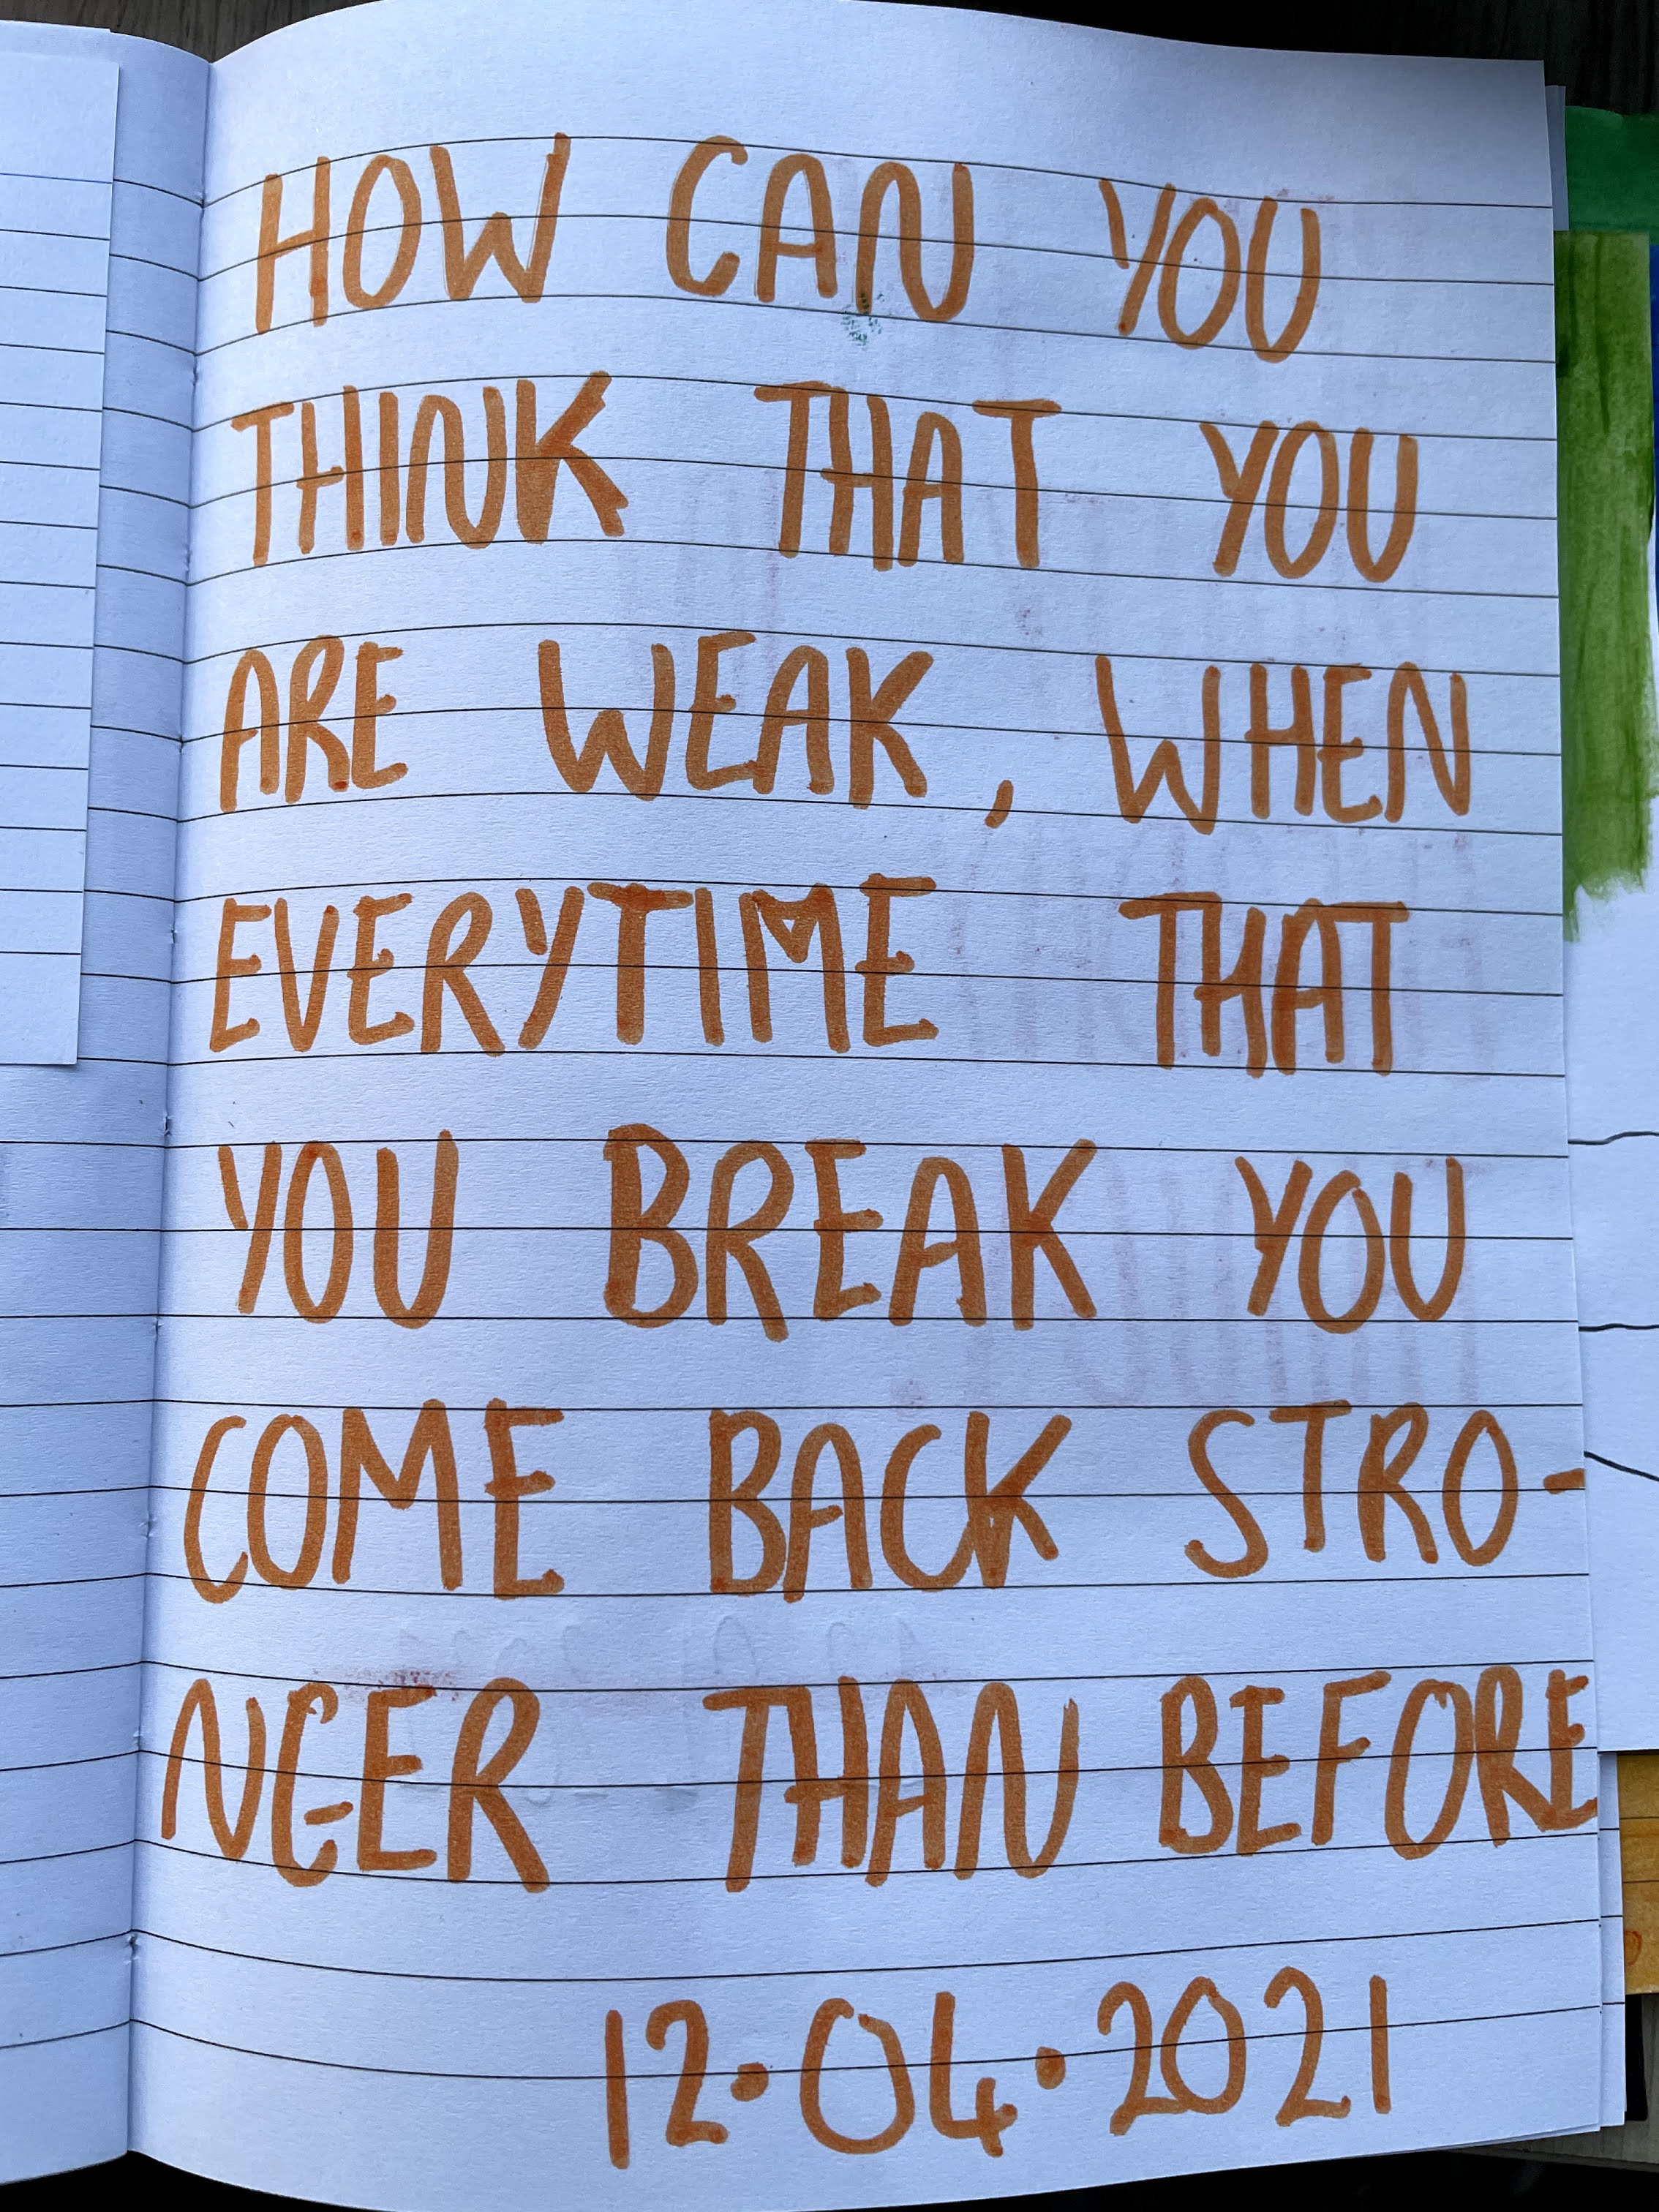 HOW CAN YOU
THINK THAT YOU
ARE WEAK, WHEN
EVERYTIME THAT
YOU BREAK YOU
COME BACK STRO-
NGER THAN BEFORE
12.04.2021